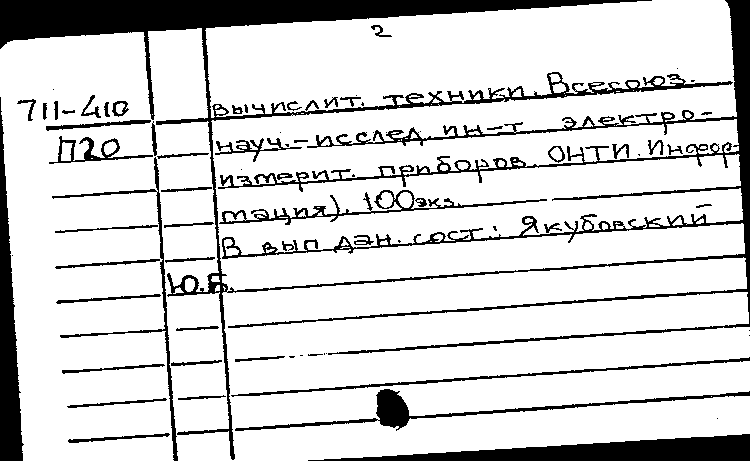 2
711-410 вычислит. техники. Всесоюз.
П20 науч.-исслед. ин-т электро-
измерит. приборов. ОНТИ. Инфор-
мация). 100экз.
В вып дан. сост.: Якубовский
Ю.Б.